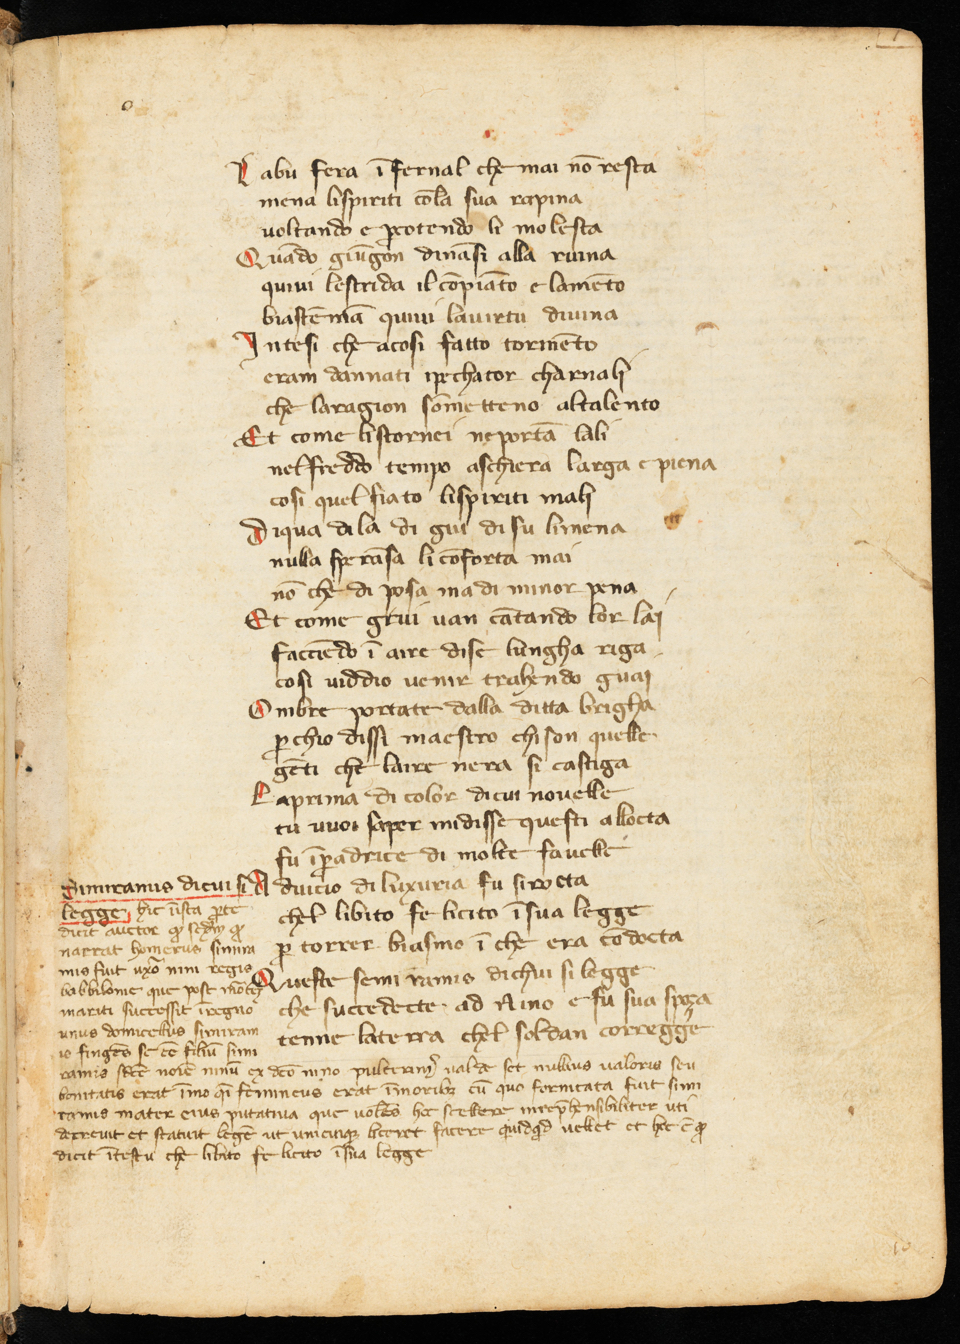 Labu fera ī fernal che mai nō resta
mena lispiriti cōla sua rapina
voltando e pcotendo li molesta
Quādo giūgon dināsi alla ruina
quiui lestrida il cōpiāto e lamēto
biastēmiā quiui lauirtu diuina
Intesi che acosi fatto tormēto
eram dannati ipechator charnali
che laragion sōmetteno altalento
Et come listornei neportā lali
nelfreddo tempo aschiera larga e piena
cosi quel fiato lispiriti mali
Diqua dila di giu disu limena
nulla sperāsa li cōforta mai
nō che di posa ma di minor pena
Et come grui uan cātando lor lai
facciēdo ī aire dise lungha riga
cosi uiddio uenir trahendo guai
Ombre portate dalla ditta brigha
p chio dissi maestro chi son quelle
gēti che laire nera si castiga
Laprima di color dicui nouelle
tu vuoi saper midisse questi allocta
fu īpadrice di molte fauelle
Aduicio di luxuria fu si rocta
chel libito fe licito ī sua legge
p torrer biasmo ī che era cōdocta
Queste semi ramis dichui si legge
che succedecte ad Nino e fu sua spoza
tenne laterra chel soldan corregge
Simiramis dicui si
legge hic iusta pte
dicit auctor
narrat homerus simira
mis fuit uxor nini regis
babbilonie que post mortē
mariti successit ī regno
unus domicellus simiram
is fingēs se cē filiū simi
ramis
bonitatis erat īmo
ramis mater eius putatiua que
decreuit et statuit legē ut unicuique liceret facere quidquid uellet et hoc ē
dicit ītestu che libito fe licito ī sua legge